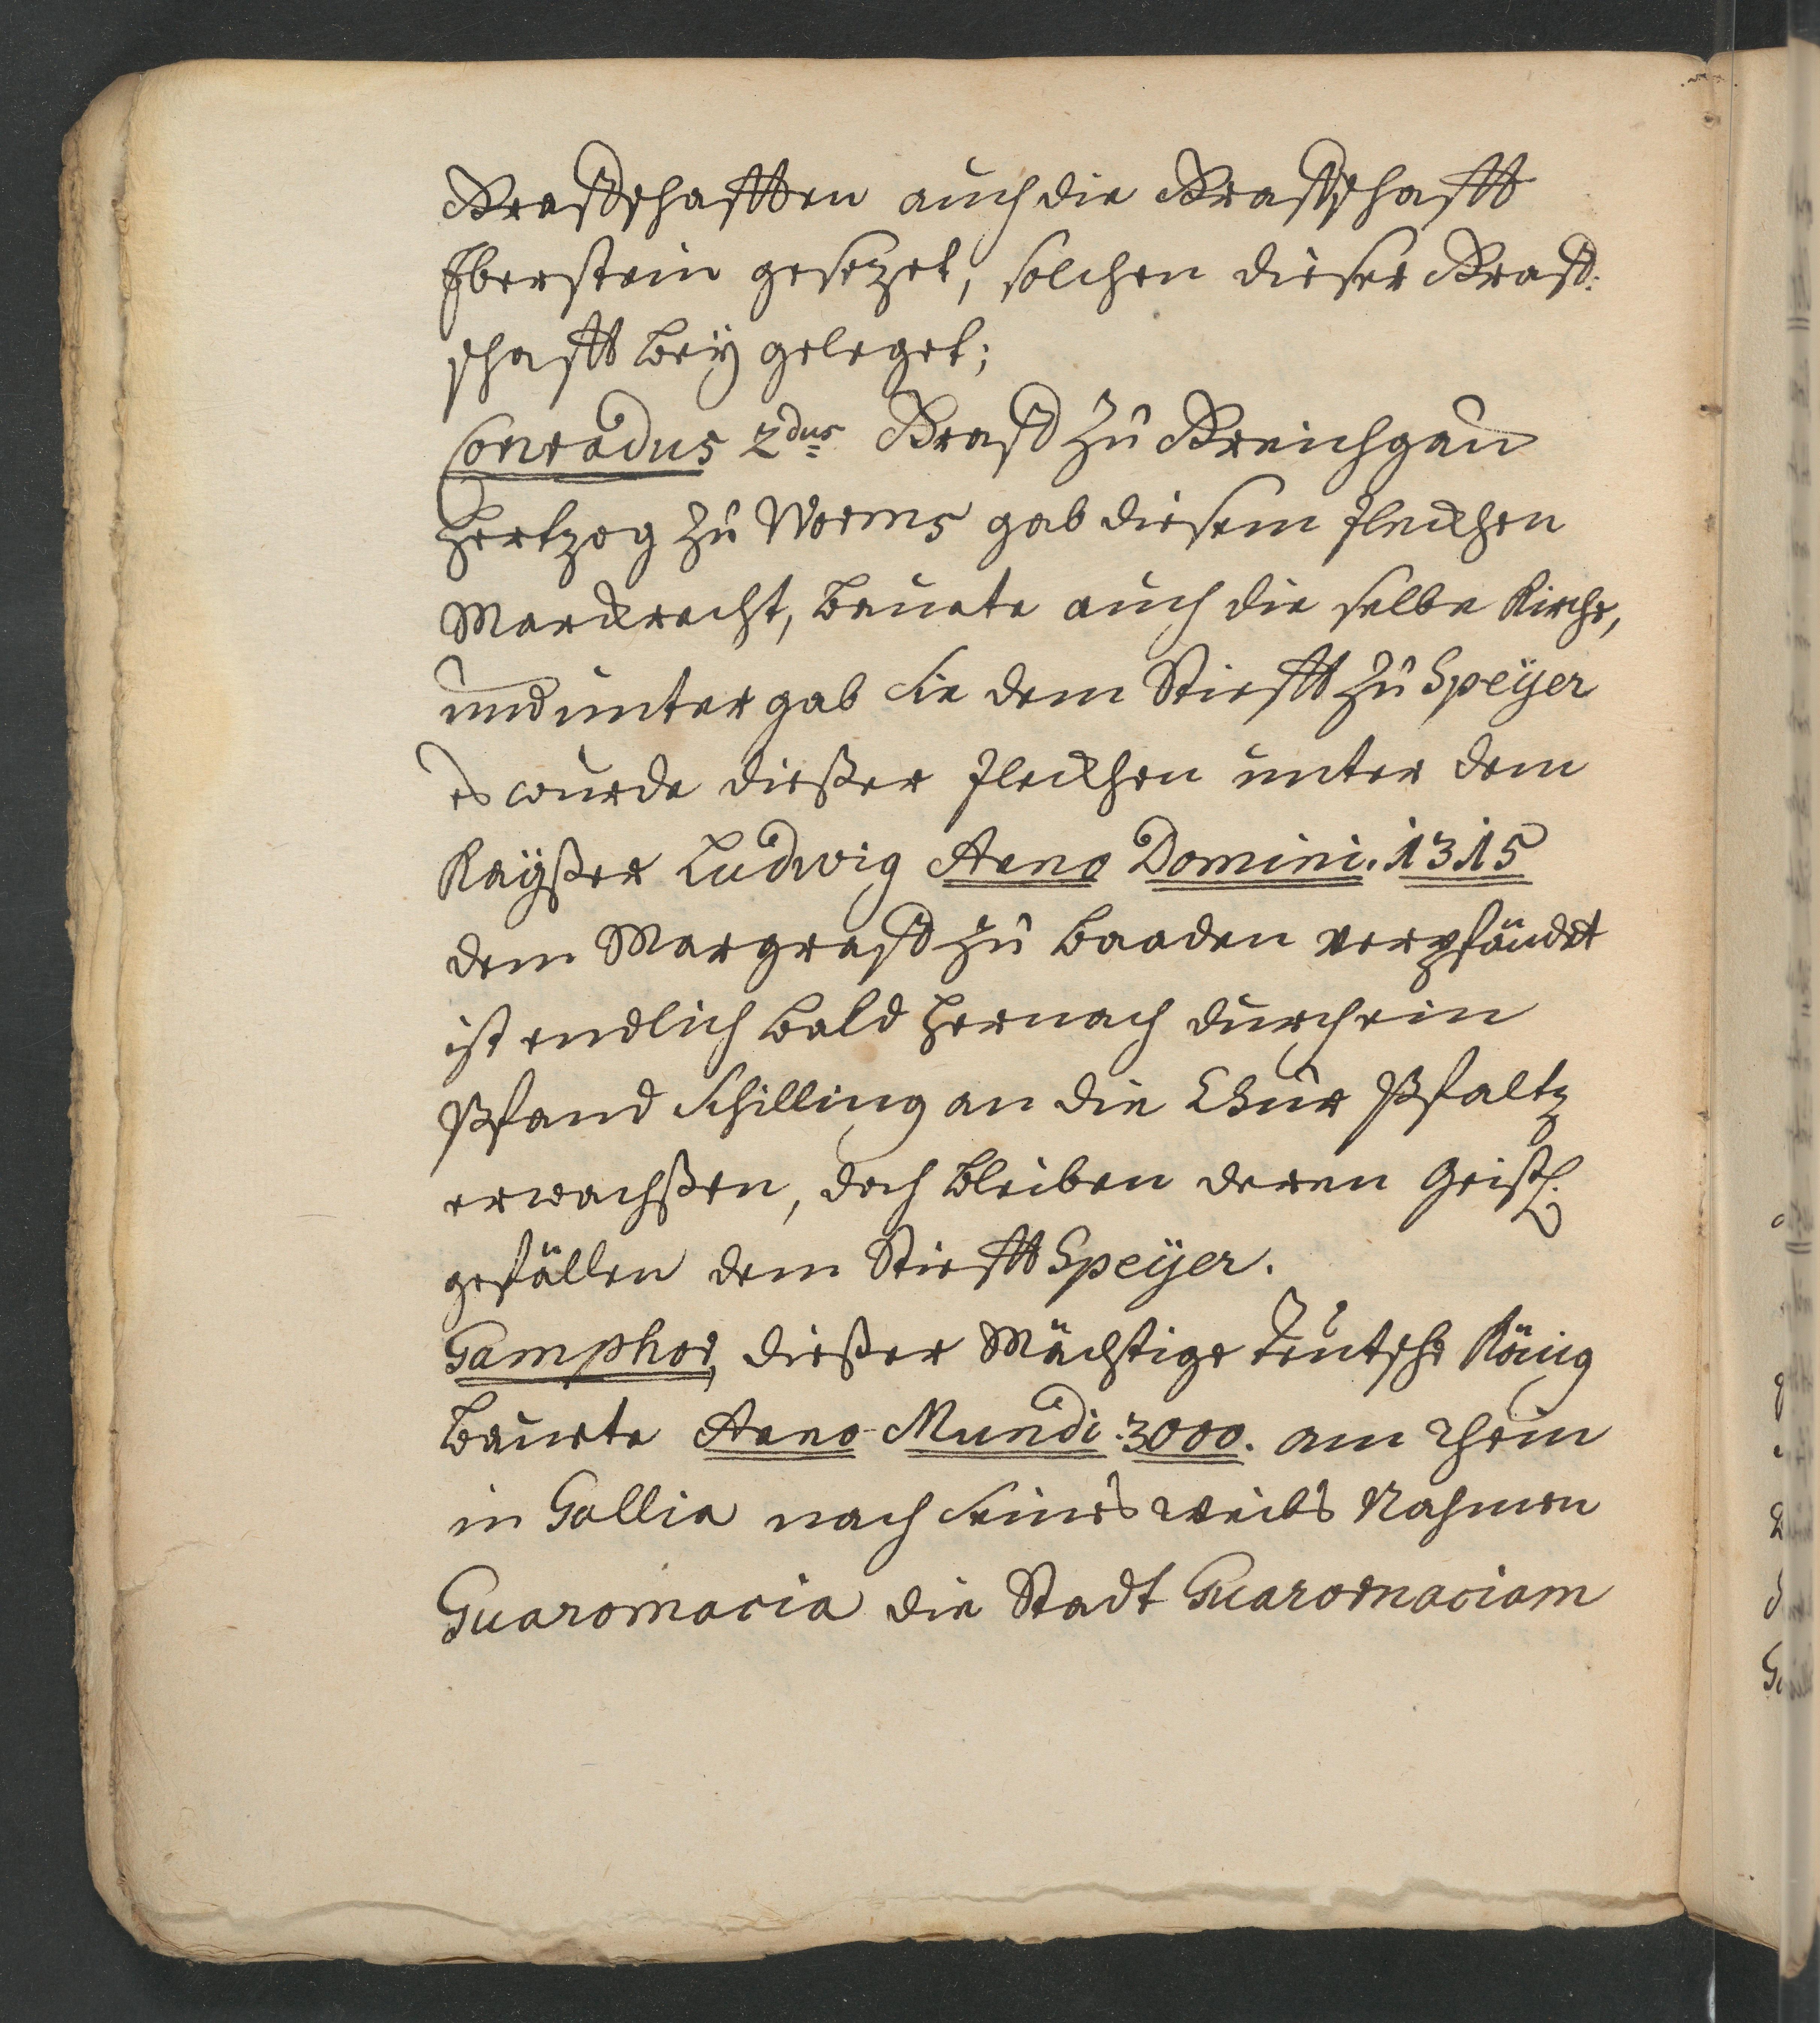 Graffschafften auch die Graffschafft
Eberstein gesezet, solchen dieser Graff:
schafft beÿ geleget;
Conradus 2dus Graff zu Kreichgau
Hertzog zu Worms gab diesem fleckhen
Marckrecht, bauete auch die selbe Kirche,
und untergab sie dem Stiefft zu Speÿer
es wurde dießer fleckhen unter dem
Kaÿßer Ludwig Anno Domini. 1315
dem Margraff zu Baaden verpfändet
ist endlich bald hernach durch ein
Pfand schilling an die Chur Pfaltz
erwachßen, doch bleiben deren Geistl:
gefällen dem Stiefft Speÿer.
Gamphor, dießer Mächtige Teutsche König
bauete Anno Mundi. 3000. am rhein
in Gallia nach seines weibs Nahmen
Guaromacia die Stadt Guaromaciam